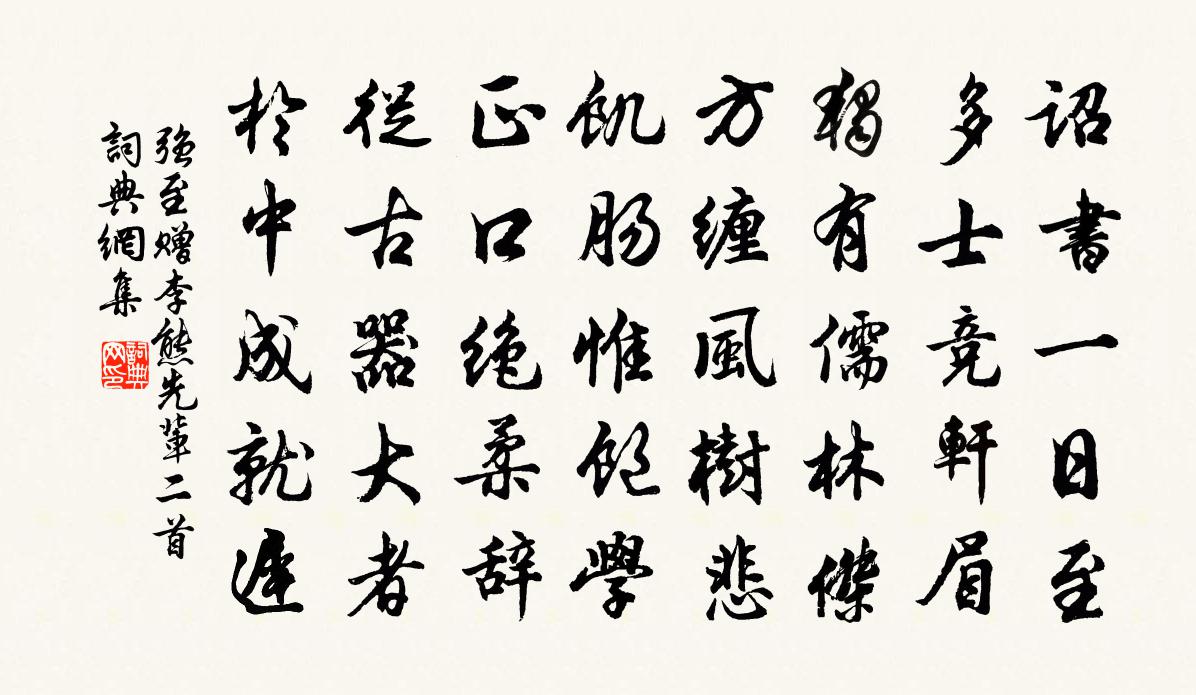 詔書一日至
多士競軒眉
獨有儒林傑
方纏風樹悲
飢腸惟飽學
正口絶柔辞
從古器大者
於中成就遲
強至贈李熊先輩二首
詞典網集